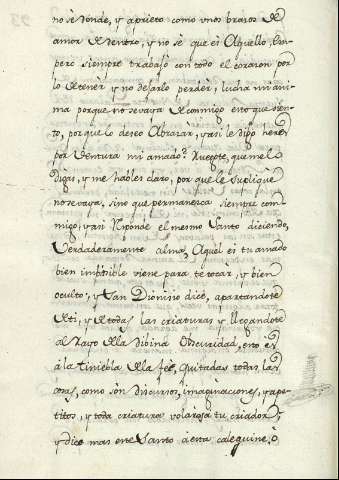 no sè donde, y aprieto como unos brazos de
amor dentro, y no sè que es Aquello, Em-
pero siempre trabajo con todo el corazon por
lo detener y no dejarlo perdèr, lucha mi àni-
ma porque no se vaya de conmigo esto que sien-
to, porque lo deseo Abrazar, y asi le digo
por Ventura mi amado? Ruegote, que me lo
digas, y me hables claro, por que le suplique
no se vaya, sino que permanezca siempre con-
migo, y asi Responde el mesmo Santo diciendo,
Verdaderamente alma, Aquèl es tu amado
bien imbisible viene para te tocar, y bien
oculto, y San Dionisio dice, apartandote
de ti, y de todas las criaturas y llegandote
al Rayo de la dibina Obscuridad, esto es
à la tiniebla de la feè, quitadas todas las
cosas, como són discursos, imaginaciones, y ape-
titos, y toda criatura volaràs a tu criador,
y dice mas este Santo à esta caliguine, ò